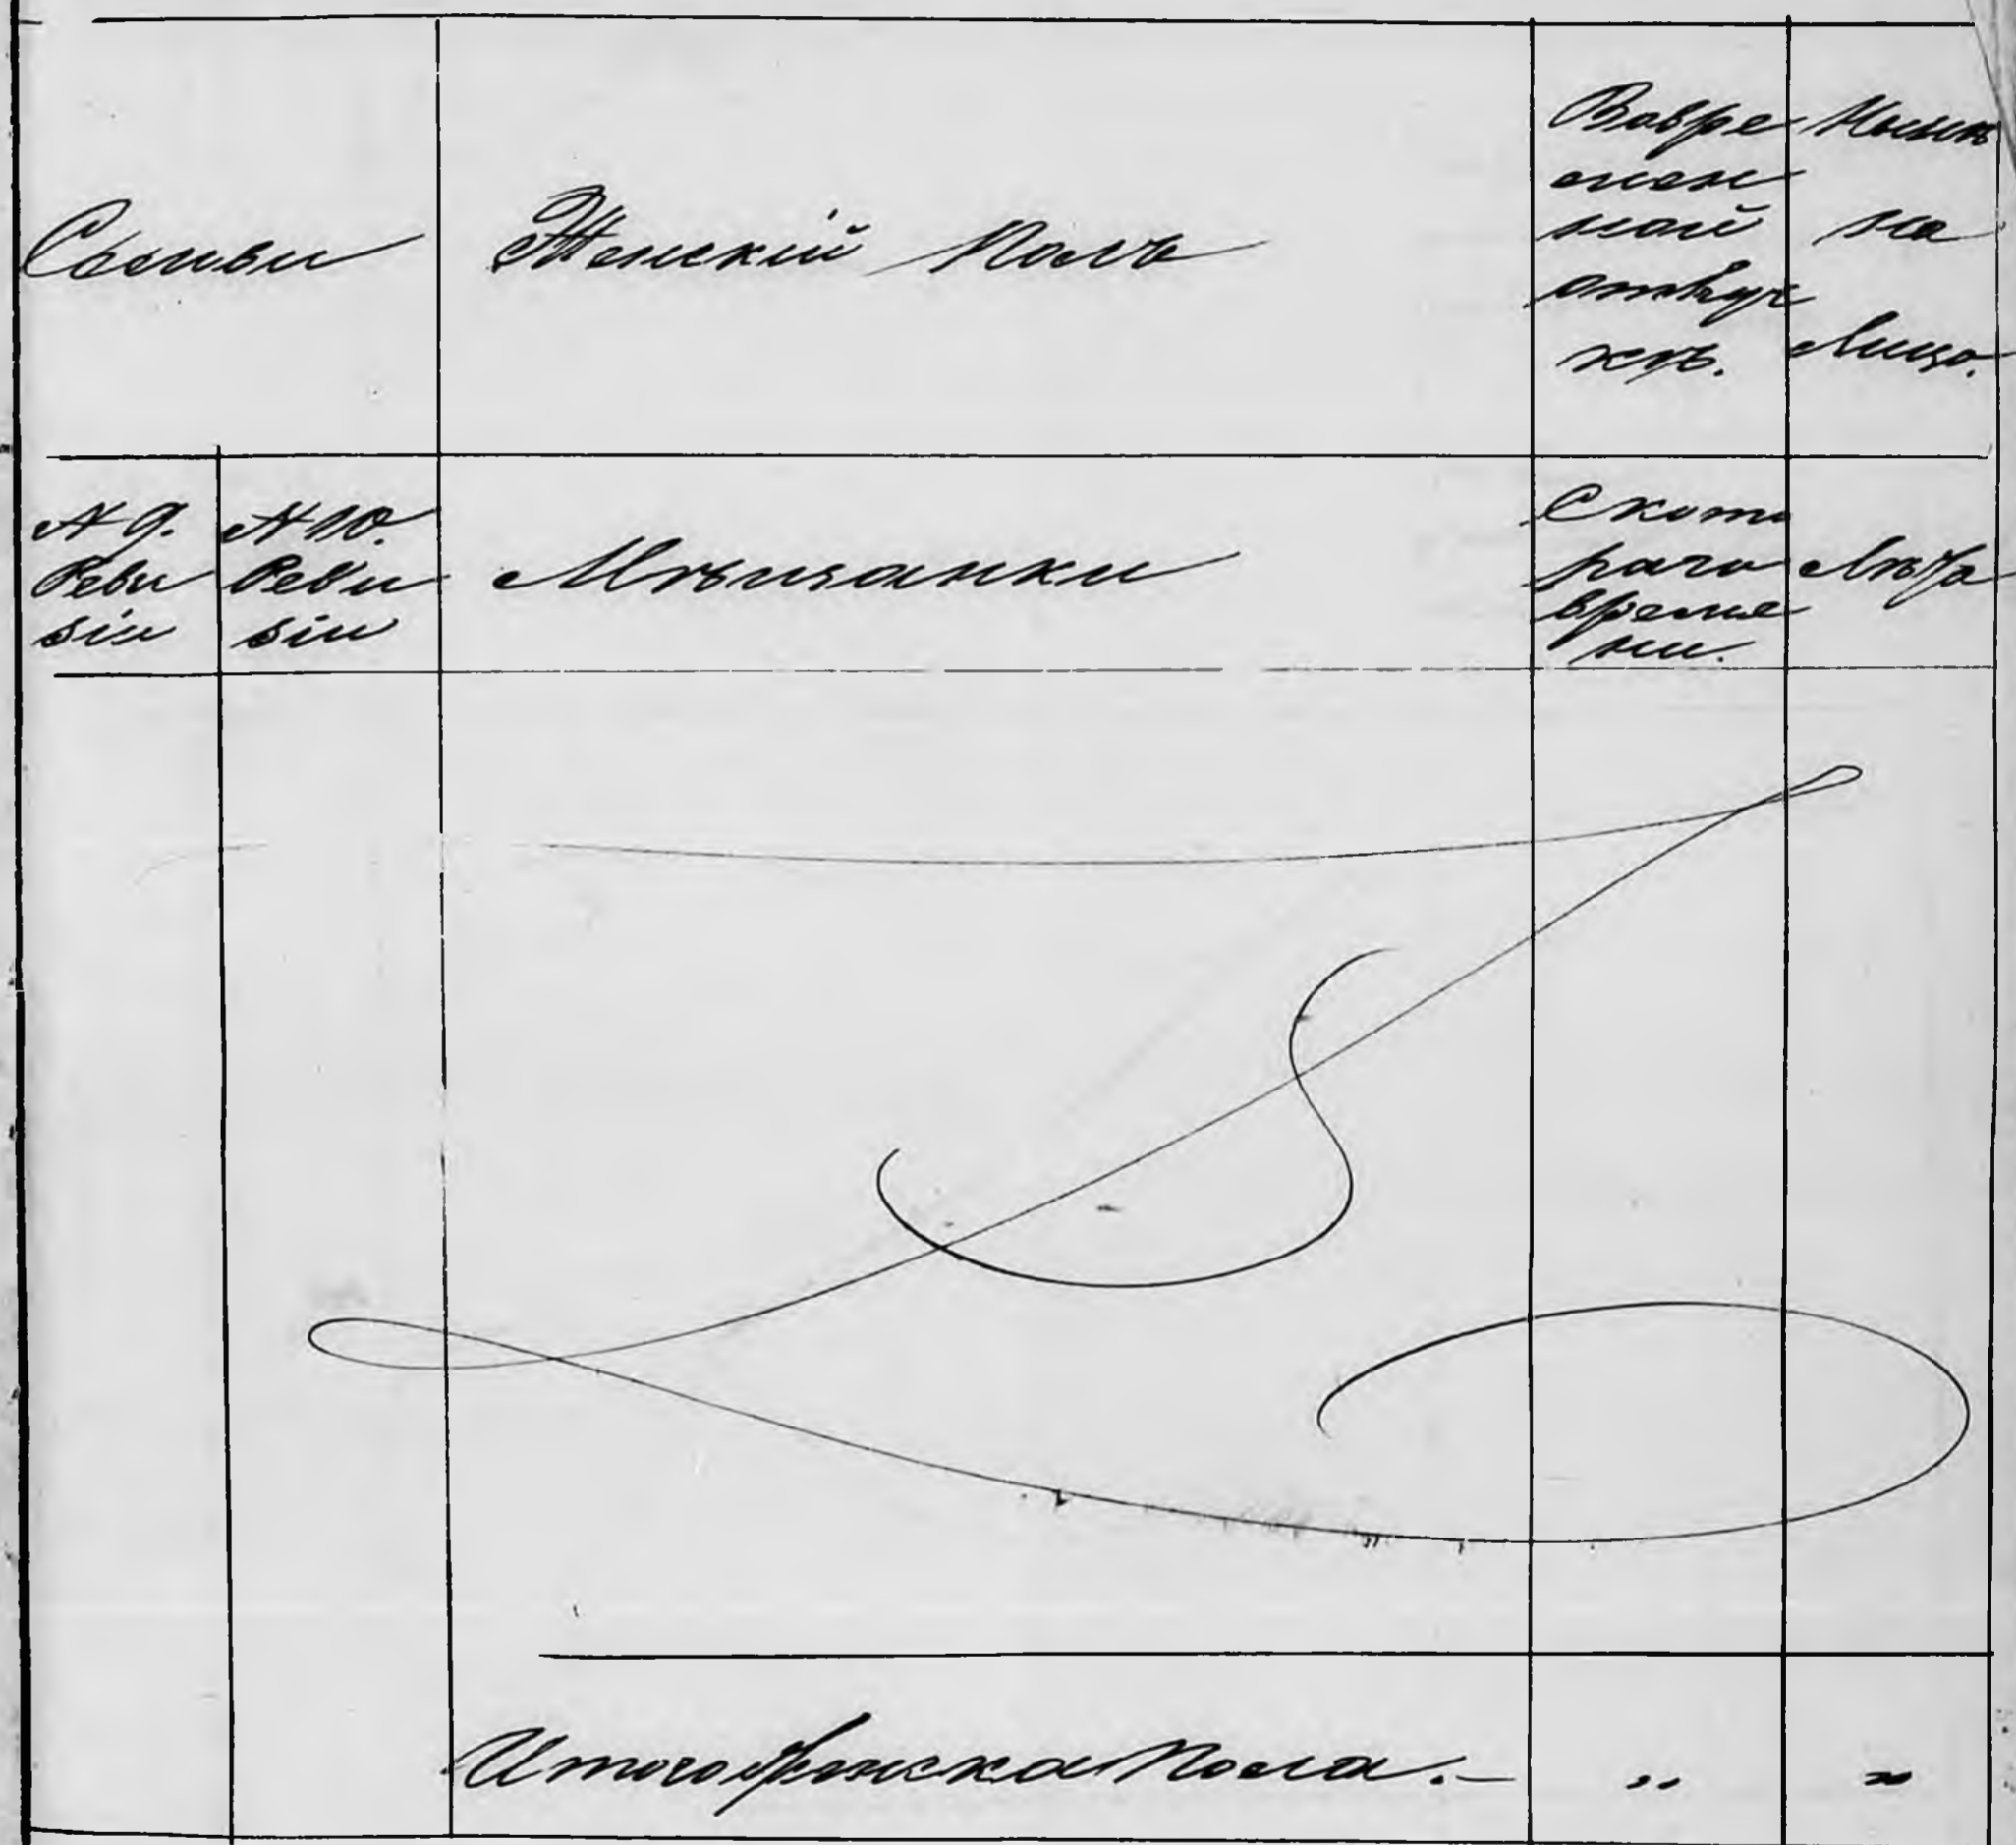 Семьи
Женскій Полъ
Вовре
мен
ной
отлуч
кѣ.
Нынѣ
на
Лицо.
№ 9.
Реви
зіи
№ 10.
Реви
зіи
Мѣщанки
Ското
раго
време
ни.
Лѣта
Итого женска пола.— „ „